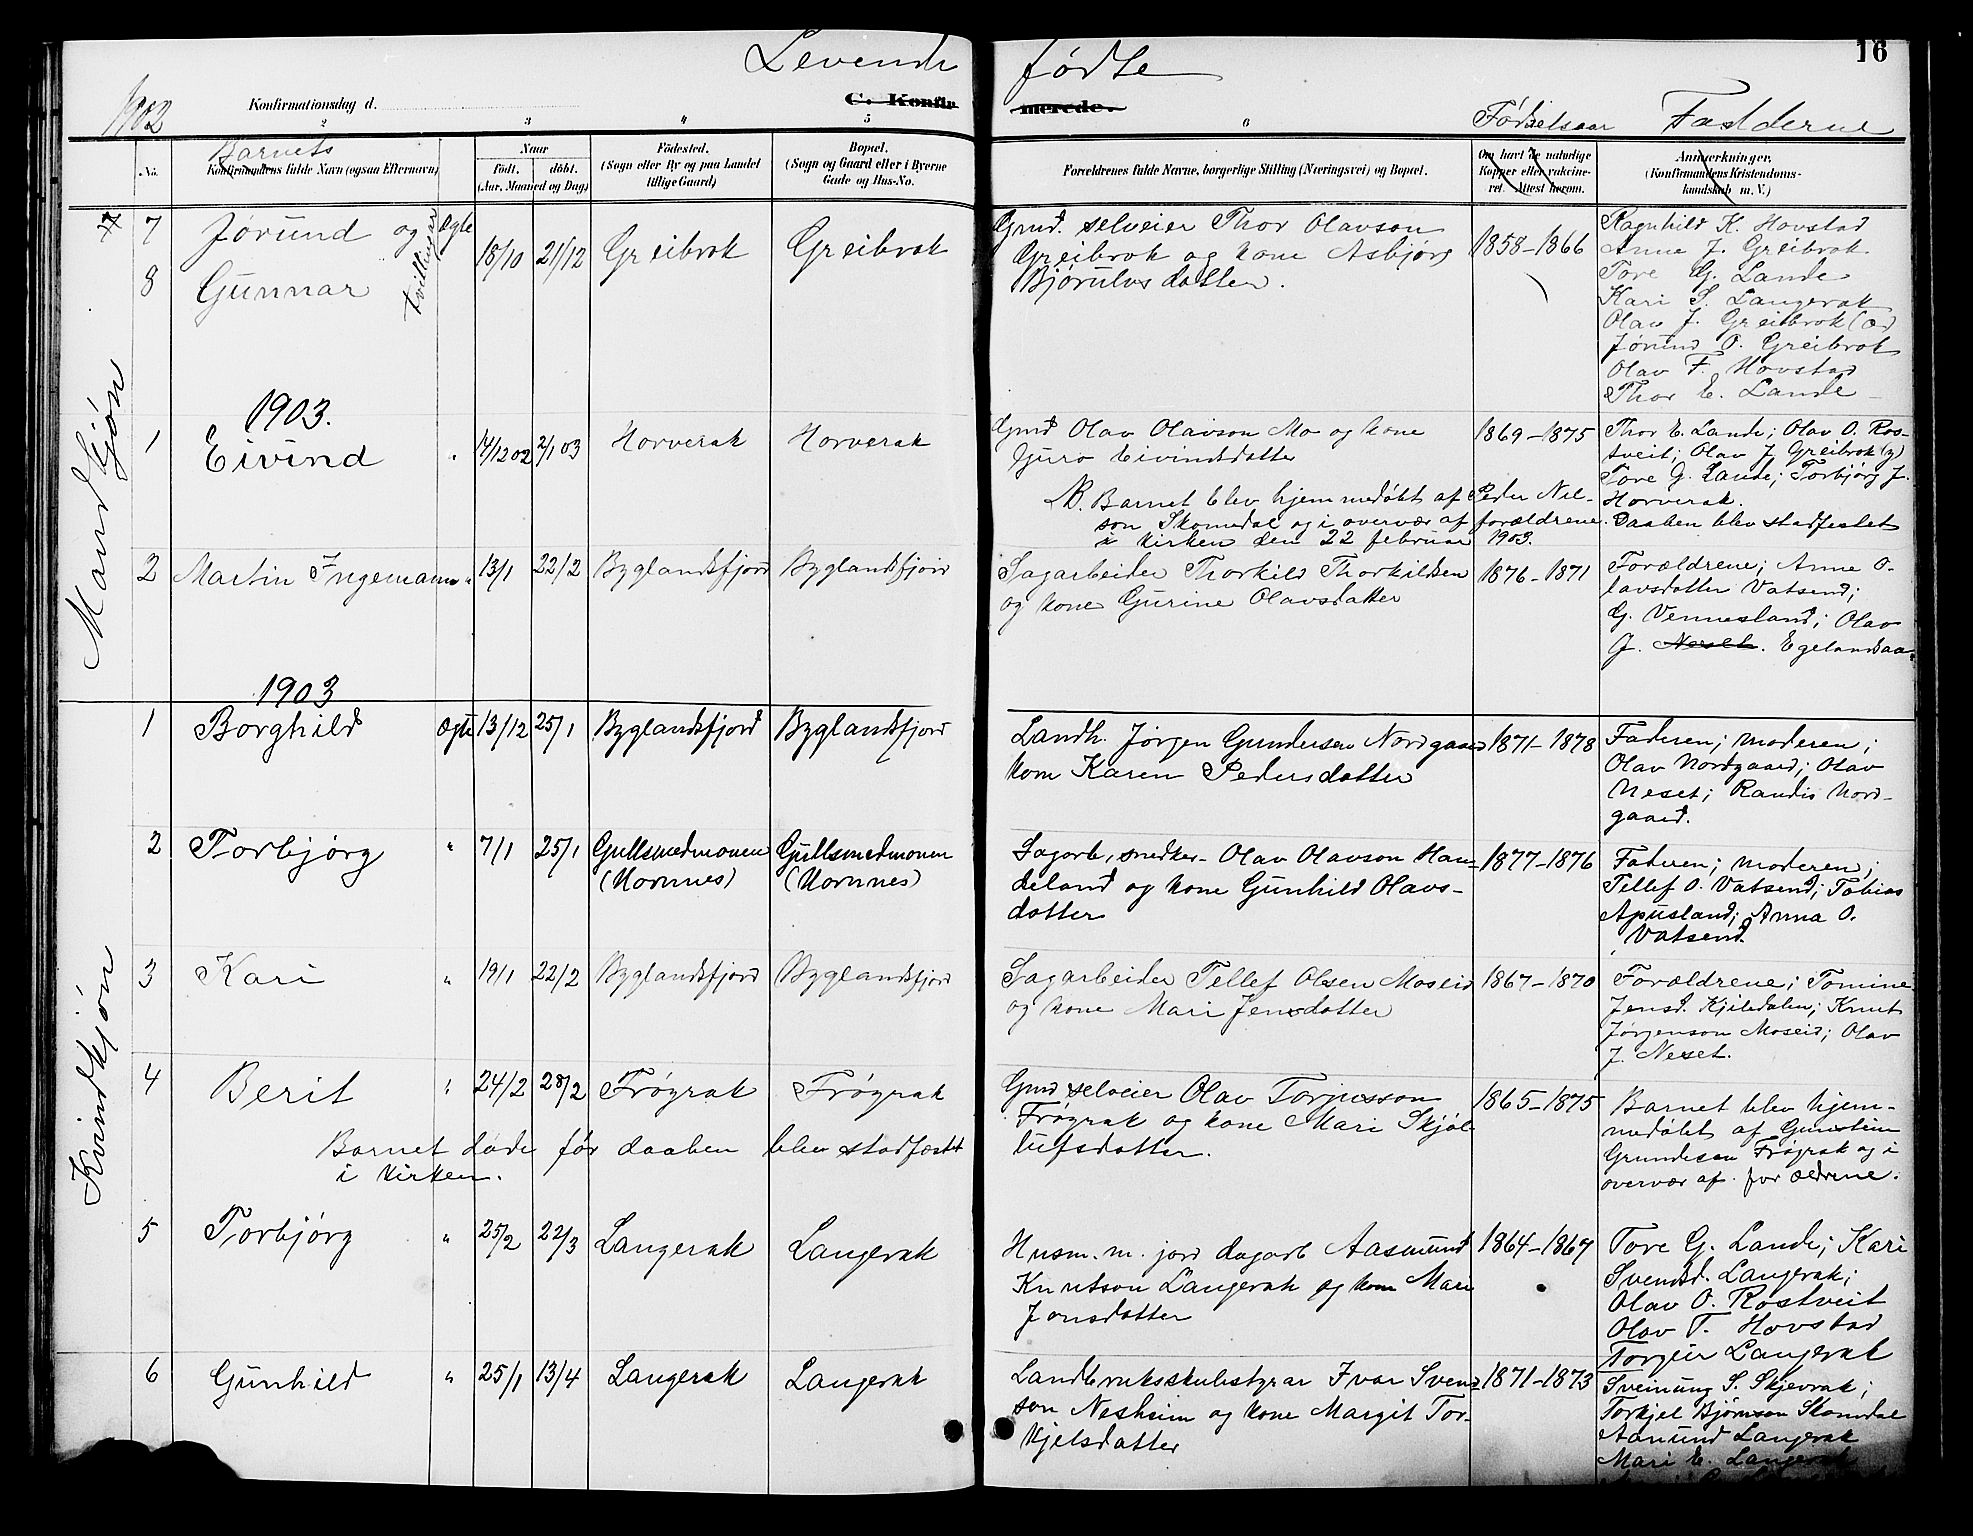 Levende fødte
16
1902
Konfirmationsdag d.
C. Konfirmerede.
Fødselsaar
Fadderne
2 3 4 5 6
No.
Barnets
Konfirmandens fulde Navn (ogsaa Efternavn)
Naar
født. døbt.
(Aar, Maaned og Dag)
Fødested.
(Sogn eller By og paa Landet
tillige Gaard)
Bopæl.
(Sogn og Gaard eller i Byerne
Gade og Hus-No.
Forældrenes fulde Navne, borgerlige Stilling (Næringsvei) og Bopæl.
Om havt de naturlige
Kopper eller vakcine-
ret. Attest herom.
Anmerkninger.
(Konfirmandens Kristendoms-
kundskab m. V.)
Mandkjøn
7 Jørund og
8 Gunnar
tvillingar
Ægte
18/10 21/12 Greibrok Greibrok
Grud. selveier Thor Olavson
Greibrok og kone Asbjørg
Bjørulvsdatter.
1858-1866
Ragnhild K. Hovstad
Anne J. Greibrok
Tore G. Lande
Kari S. Langerak
Olav J. Greibrok (æ)
Jørund O. Greibrok
Olav T. Hovstad
Thor E. Lande
1903.
1 Eivind " 14/12 02 2/1 03 Horverak Horverak
Grud Olav Olavson Mo og kone
Guro Eivindsdatter
1869-1875
NB. Barnet blev hjemmedøbt af Peder Nil-
son Skomedal og i overvær af forældrene. Daaben blev stadfestet
i kirken den 22 februar 1903.
Thor E. Lande; Olav O. Ros-
tveit; Olav J. Greibrok (y)
Tore G. Lande; Torbjørg J.
Horverak.
2 Martin Ingemann " 13/1 22/2 Byglandsfjord Byglandsfjord
Sagarbeider Thorkild Thorkildsen
og kone Gurine Olavsdatter
1876-1871
Forældrene; Anne O-
lavsdatter Vatsend;
G. Vennesland; Olav
J. Neset. Egelandsaa.
1903
Kvindkjøn
1 Borghild Ægte 13/12 25/1 Byglandsfjord Byglandsfjord
Landh. Jørgen Gundersen Nordgaard
kone Karen Pedersdatter
1871-1878
Faderen; moderen;
Olav Nordgaard; Olav
Neset; Randis Nord-
gaard.
2 Torbjørg " 7/1 25/1 Gullsmedmonen Gullsmedmonen
(Hornnes) (Hornnes)
Sagarb, snedker- Olav Olavson Hau-
deland og kone Gunhild Olavs-
datter
1877-1876
Faderen; moderen;
Tellef O. Vatsend; Tobias
Apusland; Anna O.
Vatsend.
3 Kari " 19/1 22/2 Byglandsfjord Byglandsfjord
Sagarbeider Tellef Olsen Moseid
og kone Mari Jensdatter
1867-1870
Forældrene; Tomine
Jensd. Kjiledalen; Knut
Jørgenson Moseid; Olav
J. Neset.
4 Berit " 24/2 28/2 Frøyrak Frøyrak
Barnet døde før daaben blev stadfæstet
i kirken.
Grud selveier Olav Torjusson
Frøyrak og kone Mari Skjøl-
lufsdatter.
1865-1875
Barnet blev hjem-
medøbt af Gunstein
Grundesen Frøyrak og i
overvær af forældrene.
5 Torbjørg " 25/2 22/3 Langerak Langerak
Husm. m. jord dagarb Aasmund
Knutson Langerak og kone Mari
Jonsdatter
1864-1867
Tore G. Lande; Kari
Svendsd. Langerak;
Olav O. Rostveit
Olav T. Hovstad
Torgeir Langerak
6 Gunhild " 25/1 13/4 Langerak Langerak
Landbruksskulestyrar Ivar Svend-
son Nesheim og kone Margit Tor-
kjelsdatter
1871-1873
Sveinung S. Skjevrak;
Torkjel Bjørnson Skomdal
Aanund Langerak
Mari E. Langerak